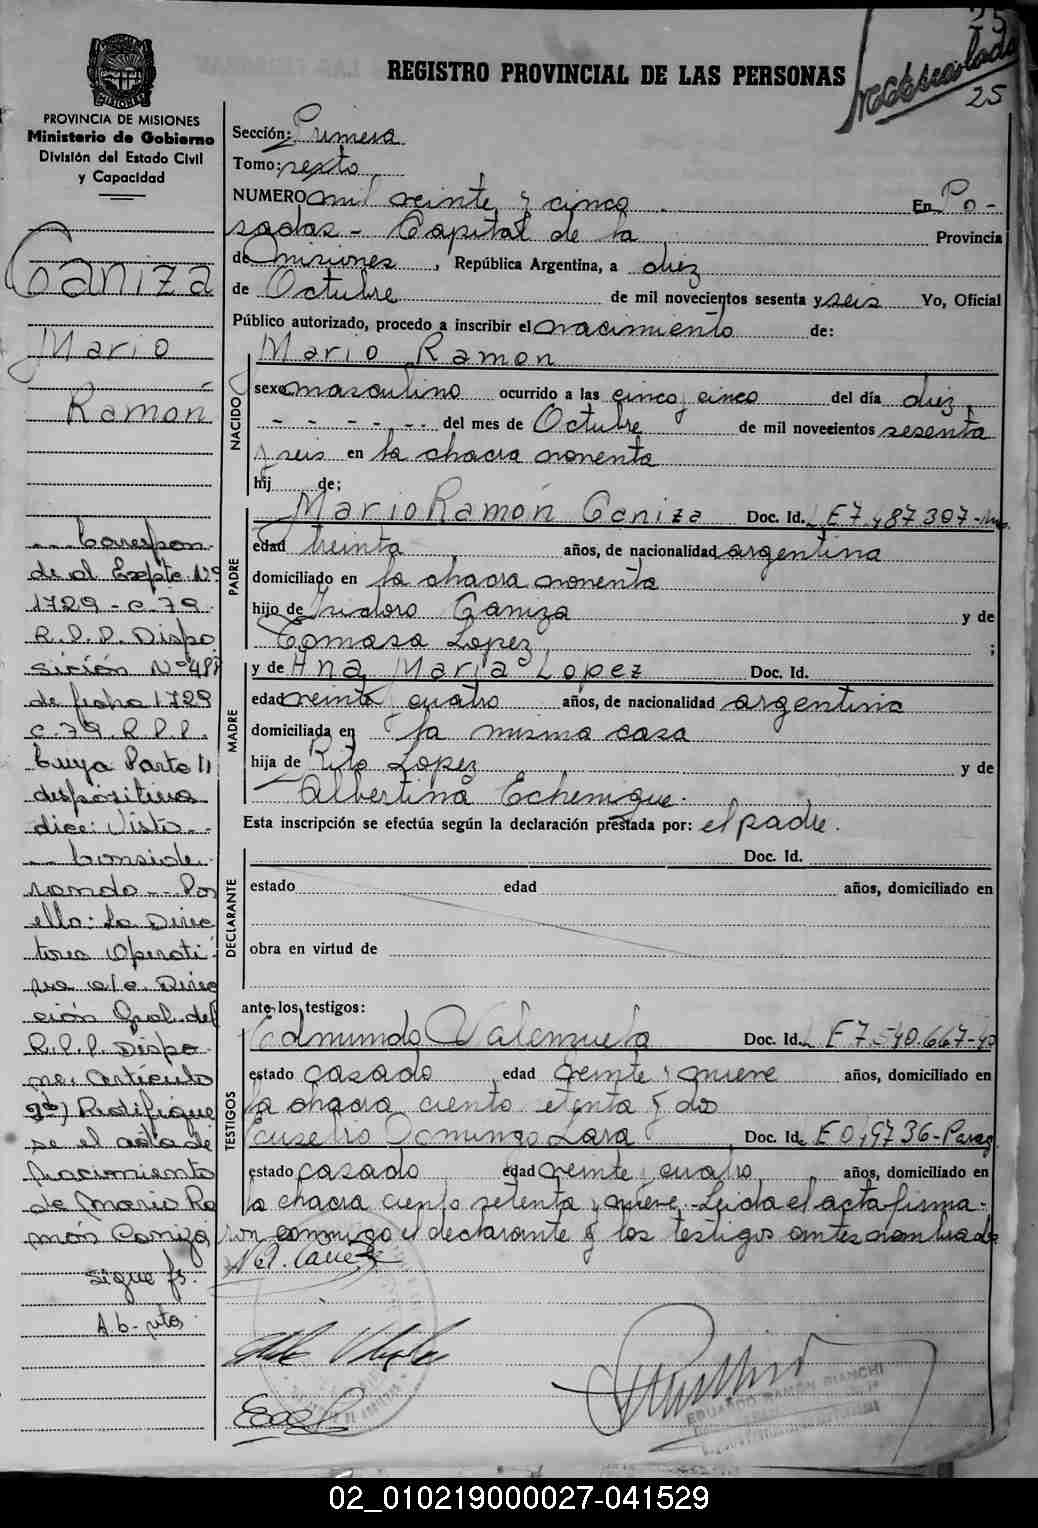 25
REGISTRO PROVINCIAL DE LAS PERSONAS
25
PROVINCIA DE MISIONES
Ministerio de Gobierno
División del Estado Civil
y Capacidad
Sección: Primera
Tomo: sexto
NUMERO mil veinte y cinco En Po-
sadas - Capital de la Provincia
de Misiones, República Argentina, a diez
de Octubre de mil novecientos sesenta y seis Yo, Oficial
Público autorizado, procedo a inscribir el nacimiento de:
Mario Ramón
NACIDO
sexo masculino ocurrido a las cinco y cinco del día diez
del mes de Octubre de mil novecientos sesenta
y seis en la chacra noventa
hij de;
PADRE
Mario Ramón Caniza Doc. Id. E 7.487.307-
edad treinta años, de nacionalidad argentina
domiciliado en la chacra noventa
hijo de Isidoro Caniza y de
Tomasa Lopez ;
MADRE
y de Ana Maria Lopez Doc. Id.
edad veinte y cuatro años, de nacionalidad argentina
domiciliada en la misma casa
hija de Rito Lopez y de
Albertina Echenique.
Esta inscripción se efectúa según la declaración prestada por: el padre.
DECLARANTE
Doc. Id.
estado edad años, domiciliado en
obra en virtud de
ante los testigos:
TESTIGOS
Edmundo Valenzuela Doc. Id. E 7.540.667-
estado casado edad veinte y nueve años, domiciliado en
la chacra ciento setenta y dos
Eusebio Domingo Lara Doc. Id. E 0.9736-Parag
estado casado edad veinte y cuatro años, domiciliado en
la chacra ciento setenta y nueve. Leída el acta firma-
ron conmigo el declarante y los testigos antes nombrados
Caniza
Mario
Ramón
Correspon-
de al Expte Nº
1729-C-79.
R.P.P. Dispo
sición Nº
de fecha 1729
C.79. R.P.P.
Cuya Parte
dispositiva
dice: Visto..
Conside-
rando -- Por
ello: La Direc
tora Operati-
va a/c. Direc
ción Gral. del
R.P.P. Dispo-
ne: Artículo
Rectifique
se el acta de
nacimiento
de Mario Ra
món Caniza
sigue fs.
EDUARDO RAMON BIANCHI
02_010219000027-041529